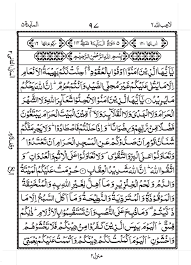 لا يحب الله ٦
٩٧
المآئدة ٥
بِسْمِ اللّٰهِ الرَّحْمٰنِ الرَّحِيْمِ
يٰۤاَيُّهَا الَّذِيْنَ اٰمَنُوْۤا اَوْفُوْا بِالْعُقُوْدِ ؕ اُحِلَّتْ لَكُمْ بَهِيْمَةُ الْاَنْعَامِ
اِلَّا مَا يُتْلٰى عَلَيْكُمْ غَيْرَ مُحِلِّى الصَّيْدِ وَاَنْتُمْ حُرُمٌ ؕ اِنَّ اللّٰهَ يَحْكُمُ
مَا يُرِيْدُ ۝ يٰۤاَيُّهَا الَّذِيْنَ اٰمَنُوْا لَا تُحِلُّوْا شَعَآئِرَ اللّٰهِ وَلَا الشَّهْرَ
الْحَرَامَ وَلَا الْهَدْىَ وَلَا الْقَلَآئِدَ وَلَاۤ آٰمِّيْنَ الْبَيْتَ الْحَرَامَ يَبْتَغُوْنَ
فَضْلًا مِّنْ رَّبِّهِمْ وَرِضْوَانًا ؕ وَاِذَا حَلَلْتُمْ فَاصْطَادُوْا ؕ وَلَا يَجْرِمَنَّكُمْ
شَنَاٰنُ قَوْمٍ اَنْ صَدُّوْكُمْ عَنِ الْمَسْجِدِ الْحَرَامِ اَنْ تَعْتَدُوْا ۘ
وَتَعَاوَنُوْا عَلَى الْبِرِّ وَالتَّقْوٰى ۪ وَلَا تَعَاوَنُوْا عَلَى الْاِثْمِ وَالْعُدْوَانِ ۪
وَاتَّقُوا اللّٰهَ ؕ اِنَّ اللّٰهَ شَدِيْدُ الْعِقَابِ ۝ حُرِّمَتْ عَلَيْكُمُ الْمَيْتَةُ
وَالدَّمُ وَلَحْمُ الْخِنْزِيْرِ وَمَاۤ اُهِلَّ لِغَيْرِ اللّٰهِ بِهٖ وَالْمُنْخَنِقَةُ
وَالْمَوْقُوْذَةُ وَالْمُتَرَدِّيَةُ وَالنَّطِيْحَةُ وَمَاۤ اَكَلَ السَّبُعُ اِلَّا
مَا ذَكَّيْتُمْ ۟ وَمَا ذُبِحَ عَلَى النُّصُبِ وَاَنْ تَسْتَقْسِمُوْا بِالْاَزْلَامِ ؕ ذٰلِكُمْ
فِسْقٌ ؕ اَلْيَوْمَ يَئِسَ الَّذِيْنَ كَفَرُوْا مِنْ دِيْنِكُمْ فَلَا تَخْشَوْهُمْ
وَاخْشَوْنِ ؕ اَلْيَوْمَ اَكْمَلْتُ لَكُمْ دِيْنَكُمْ وَاَتْمَمْتُ عَلَيْكُمْ نِعْمَتِىْ
منزل ٢